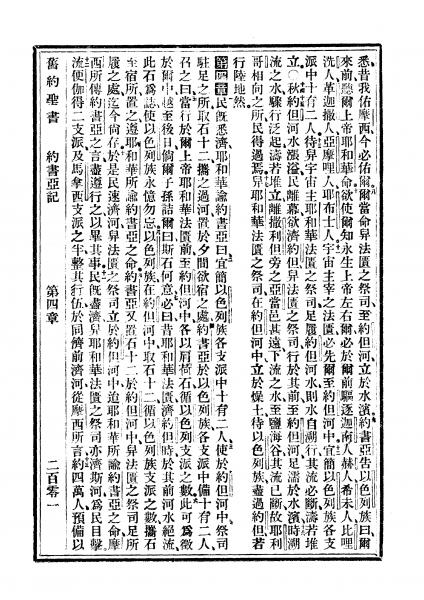 悉昔我佑摩西今必佑爾爾當命舁法匱之祭司至約但河立於水濱約書亞告以色列族曰爾
來前聽爾上帝耶和華命欲使爾知永生上帝左右爾必於爾前驅逐迦南人赫人希未人比哩
洗人革迦撒人亞摩哩人耶布士人宇宙主宰之法匱必先爾至約但河中宜簡以色列族各支
派中十有二人待舁宇宙主耶和華法匱之祭司足履約但河水則水自潮行其流必斷濤若堆
立○秋約但河水漲溢民離幕欲濟約但舁法匱之祭司行於其前至約但河足濡於水濱時潮
流之水驟行泛起濤若堆立離撒利但旁之亞當邑甚遠下流之水至鹽海谷其流已斷故耶利
哥相向之所民得過焉舁耶和華法匱之祭司在約但河中立於燥土待以色列族盡過約但若
行陸地然
第四章民旣悉濟耶和華諭約書亞曰宜簡以色列族各支派中十有二人使於約但河中祭司
駐足之所取石十二攜之過河置於夕間欲宿之處約書亞於以色列族各支派中備十有二人
召之曰當行於爾上帝耶和華法匱前至約但河中各以肩荷石循以色列支派之數此可爲徵
於爾中越至後日倘爾子孫詰爾曰斯石何意必曰昔耶和華法匱濟約但時於其前河水絕流
此石爲誌使以色列族永憶勿忘以色列族在約但河中取石十二循以色列族支派之數攜石
至宿所置之遵耶和華所諭約書亞之命約書亞又置石十二於約但河中舁法匱之祭司足所
履之處迄今尙存於是民速濟河舁法匱之祭司立於約但河中迨耶和華所諭約書亞之命摩
西所傳約書亞之言盡遵行之以畢其事民旣盡濟舁耶和華法匱之祭司亦濟斯河爲民目擊
流便伽得二支派及馬拿西支派之半整其行伍於同儕前濟河從摩西所言約四萬人預備以
舊約聖書 約書亞記 第四章 二百零一